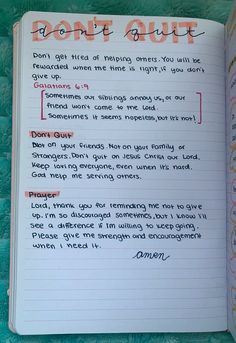 DON'T QUIT
don't quit
Don't get tired of helping others. You will be
rewarded when the time is right, if you don't
give up.
Galatians 6:9
Sometimes our siblings annoy us, or our
friend won't come to the Lord.
Sometimes it seems hopeless, but it's not!
Don't Quit
Not on your friends. Not on your family or
strangers. Don't quit on Jesus Christ our Lord.
Keep loving everyone, even when it's hard.
God help me serving others.
Prayer
Lord, thank you for reminding me not to give
up. I'm so discouraged sometimes, but I know I'll
see a difference if I'm willing to keep going.
Please give me strength and encouragement
when I need it.
amen